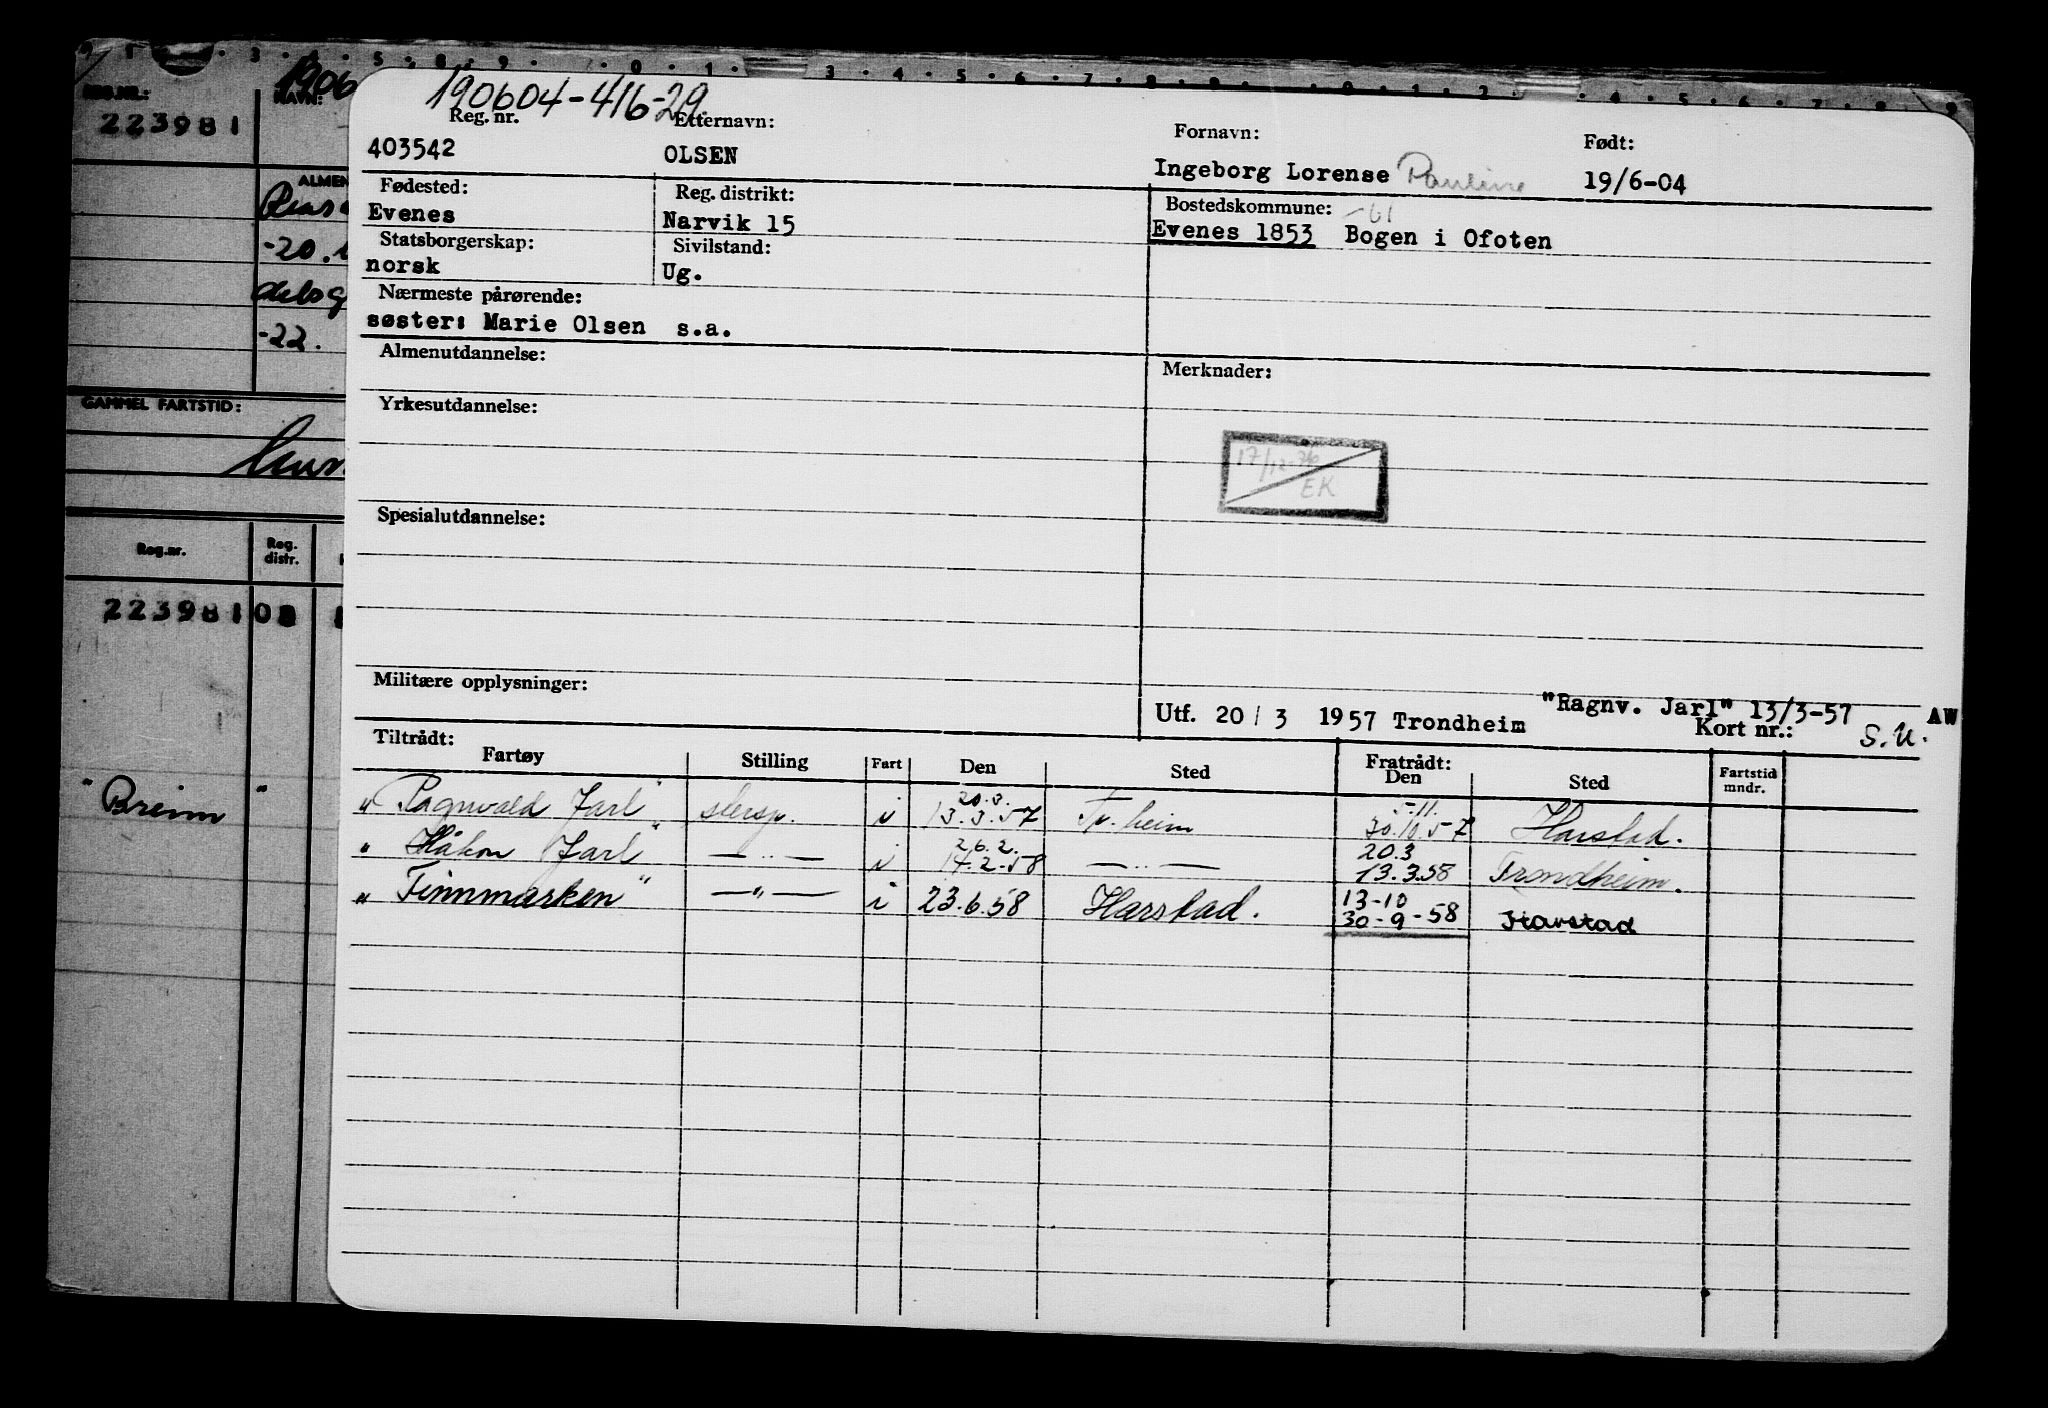 190604-416-29.
Reg. nr. Etternavn: Fornavn: Født:
403542 OLSEN Ingeborg Lorense Pauline 19/6-04
Fødested: Reg. distrikt: Bostedskommune: -61
Evenes Narvik 15 Evenes 1853 Bogen i Ofoten
Statsborgerskap: Sivilstand:
norsk Ug.
Nærmeste pårørende:
søster: Marie Olsen s.a.
Almenutdannelse: Merknader:
Yrkesutdannelse:
17/12-76
EK
Spesialutdannelse:
Militære opplysninger:
"Ragnv. Jarl" 13/3-57 AW
Utf. 20/3 1957 Trondheim Kort nr.: S.U.
Tiltrådt: Fratrådt:
Fartøy Stilling Fart Den Sted Den Sted Fartstid mndr.
20.3. 5.11.
"Ragnvald Jarl" stersp. i 13.3.57 Tr.heim 30.10.57 Harstad.
26.2. 20.3
"Håkon Jarl" —..— i 14.2-58 —..— 13.3.58 Trondheim.
13-10
"Finnmarken" —"— i 23.6.58 Harstad. 30-9-58 Harstad
REG.NR.: NAVN:
1906
223981
ALMEN
-20.
-22.
GAMMEL FARTSTID:
Reg.nr. Reg. distr.
223981 03
"Breim"